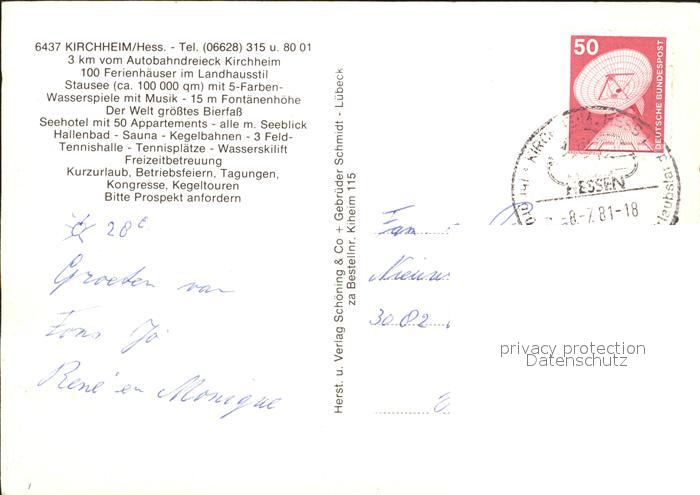 6437 KIRCHHEIM/Hess. - Tel. (06628) 315 u. 80 01
3 km vom Autobahndreieck Kirchheim
100 Ferienhäuser im Landhausstil
Stausee (ca. 100 000 qm) mit 5-Farben-
Wasserspiele mit Musik - 15 m Fontänenhöhe
Der Welt größtes Bierfaß
Seehotel mit 50 Appartements - alle m. Seeblick
Hallenbad - Sauna - Kegelbahnen - 3 Feld-
Tennishalle - Tennisplätze - Wasserskilift
Freizeitbetreuung
Kurzurlaub, Betriebsfeiern, Tagungen,
Kongresse, Kegeltouren
Bitte Prospekt anfordern
28c
Groeten van
Fons Jo
René en Monique
Herst. u. Verlag Schöning & Co + Gebrüder Schmidt - Lübeck
za Bestellnr. Kiheim 115
50
DEUTSCHE BUNDESPOST
HESSEN
-8.-7.81-18
Fam
Nieuw
30.02
privacy protection
Datenschutz